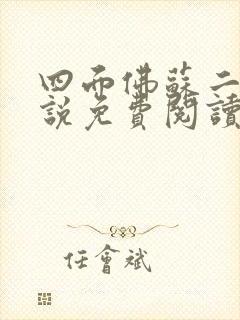 四而佛蘇二
說免費閱讀
任會斌